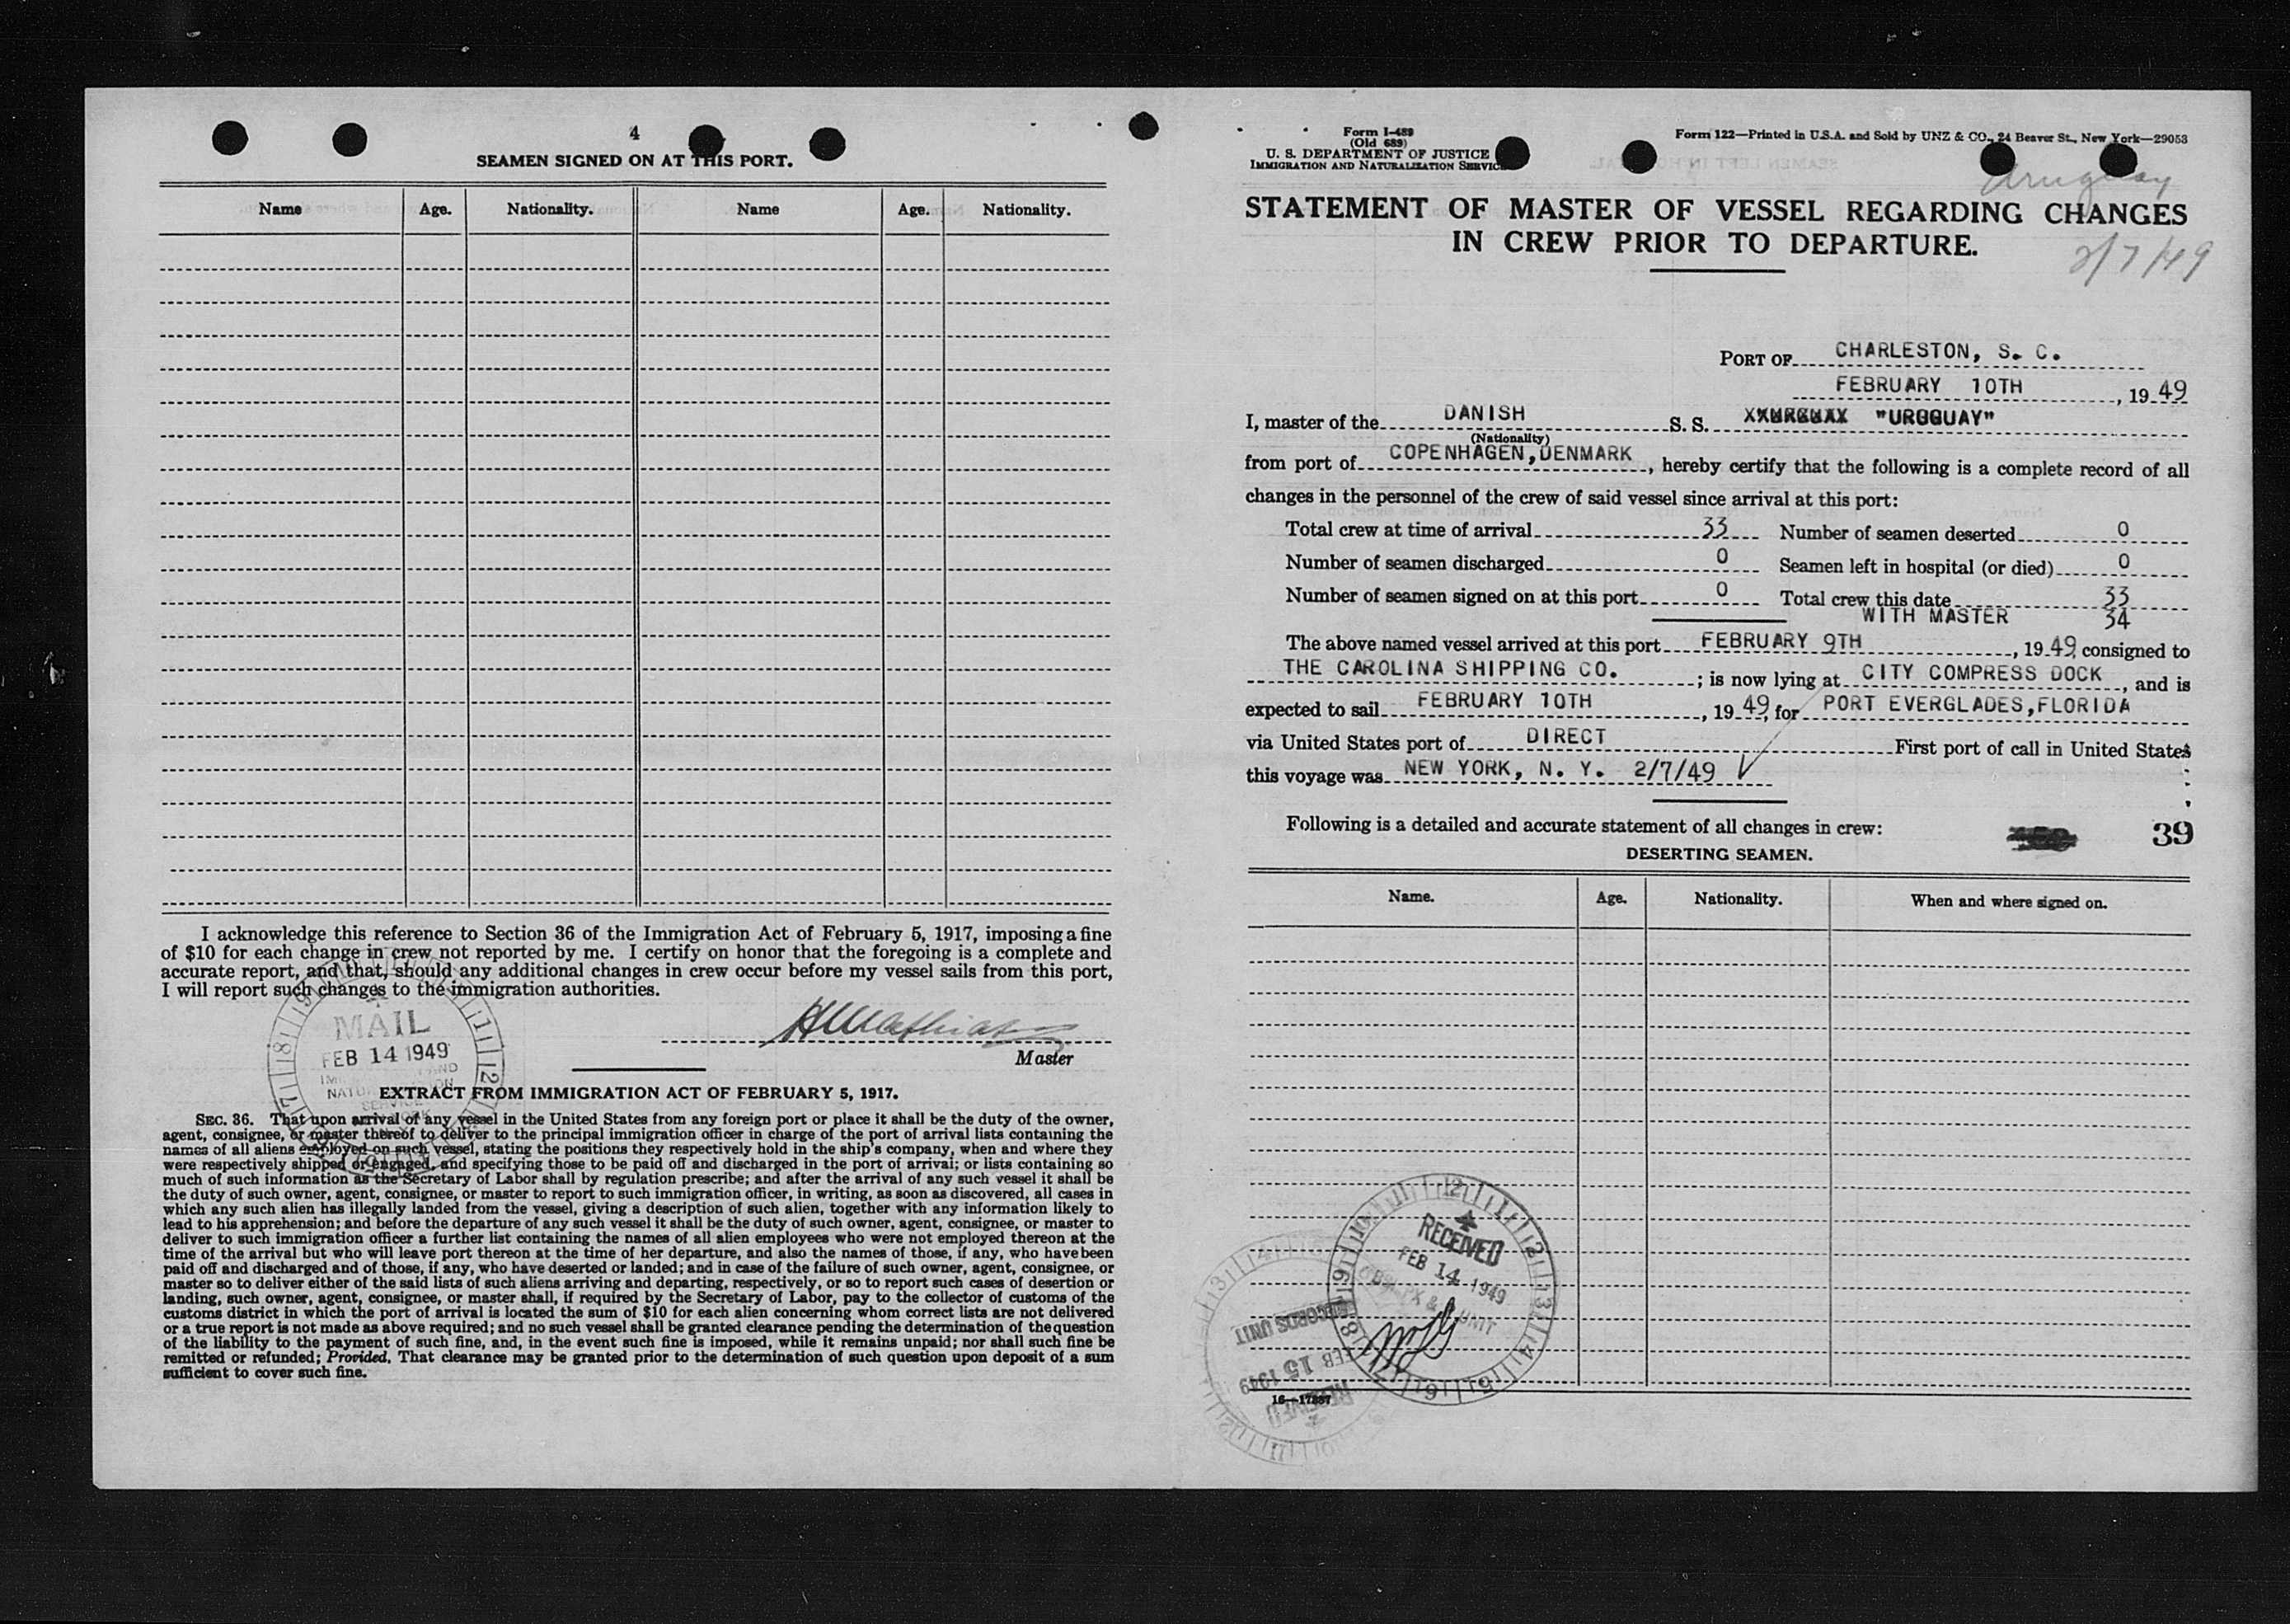 4
SEAMEN SIGNED ON AT THIS PORT.
Name Age. Nationality. Name Age. Nationality.
I acknowledge this reference to Section 36 of the Immigration Act of February 5, 1917, imposing a fine
of $10 for each change in crew not reported by me. I certify on honor that the foregoing is a complete and
accurate report, and that, should any additional changes in crew occur before my vessel sails from this port,
I will report such changes to the immigration authorities.
MAIL
FEB 14 1949
Master
EXTRACT FROM IMMIGRATION ACT OF FEBRUARY 5, 1917.
SEC. 36. That upon arrival of any vessel in the United States from any foreign port or place it shall be the duty of the owner,
agent, consignee, or master thereof to deliver to the principal immigration officer in charge of the port of arrival lists containing the
names of all aliens employed on such vessel, stating the positions they respectively hold in the ship's company, when and where they
were respectively shipped or engaged, and specifying those to be paid off and discharged in the port of arrival; or lists containing so
much of such information as the Secretary of Labor shall by regulation prescribe; and after the arrival of any such vessel it shall be
the duty of such owner, agent, consignee, or master to report to such immigration officer, in writing, as soon as discovered, all cases in
which any such alien has illegally landed from the vessel, giving a description of such alien, together with any information likely to
lead to his apprehension; and before the departure of any such vessel it shall be the duty of such owner, agent, consignee, or master to
deliver to such immigration officer a further list containing the names of all alien employees who were not employed thereon at the
time of the arrival but who will leave port thereon at the time of her departure, and also the names of those, if any, who have been
paid off and discharged and of those, if any, who have deserted or landed; and in case of the failure of such owner, agent, consignee, or
master so to deliver either of the said lists of such aliens arriving and departing, respectively, or so to report such cases of desertion or
landing, such owner, agent, consignee, or master shall, if required by the Secretary of Labor, pay to the collector of customs of the
customs district in which the port of arrival is located the sum of $10 for each alien concerning whom correct lists are not delivered
or a true report is not made as above required; and no such vessel shall be granted clearance pending the determination of the question
of the liability to the payment of such fine, and, in the event such fine is imposed, while it remains unpaid; nor shall such fine be
remitted or refunded; Provided, That clearance may be granted prior to the determination of such question upon deposit of a sum
sufficient to cover such fine.
Form I-489
(Old 689)
U. S. DEPARTMENT OF JUSTICE
IMMIGRATION AND NATURALIZATION SERVICE
Form 122—Printed in U.S.A. and Sold by UNZ & CO., 24 Beaver St., New York—29053
Uruguay
STATEMENT OF MASTER OF VESSEL REGARDING CHANGES
IN CREW PRIOR TO DEPARTURE.
2/7/49
PORT OF CHARLESTON, S. C.
FEBRUARY 10TH, 1949
I, master of the DANISH S. S. "URUGUAY"
(Nationality)
from port of COPENHAGEN, DENMARK, hereby certify that the following is a complete record of all
changes in the personnel of the crew of said vessel since arrival at this port:
Total crew at time of arrival 33 Number of seamen deserted 0
Number of seamen discharged 0 Seamen left in hospital (or died) 0
Number of seamen signed on at this port 0 Total crew this date 33
WITH MASTER 34
The above named vessel arrived at this port FEBRUARY 9TH, 1949, consigned to
THE CAROLINA SHIPPING CO.; is now lying at CITY COMPRESS DOCK, and is
expected to sail FEBRUARY 10TH, 1949, for PORT EVERGLADES, FLORIDA
via United States port of DIRECT First port of call in United States
this voyage was NEW YORK, N. Y. 2/7/49
Following is a detailed and accurate statement of all changes in crew:
39
DESERTING SEAMEN.
Name. Age. Nationality. When and where signed on.
RECEIVED
FEB 14 1949
RECORDS UNIT
FEB 15 1949
RECEIVED
16—17887